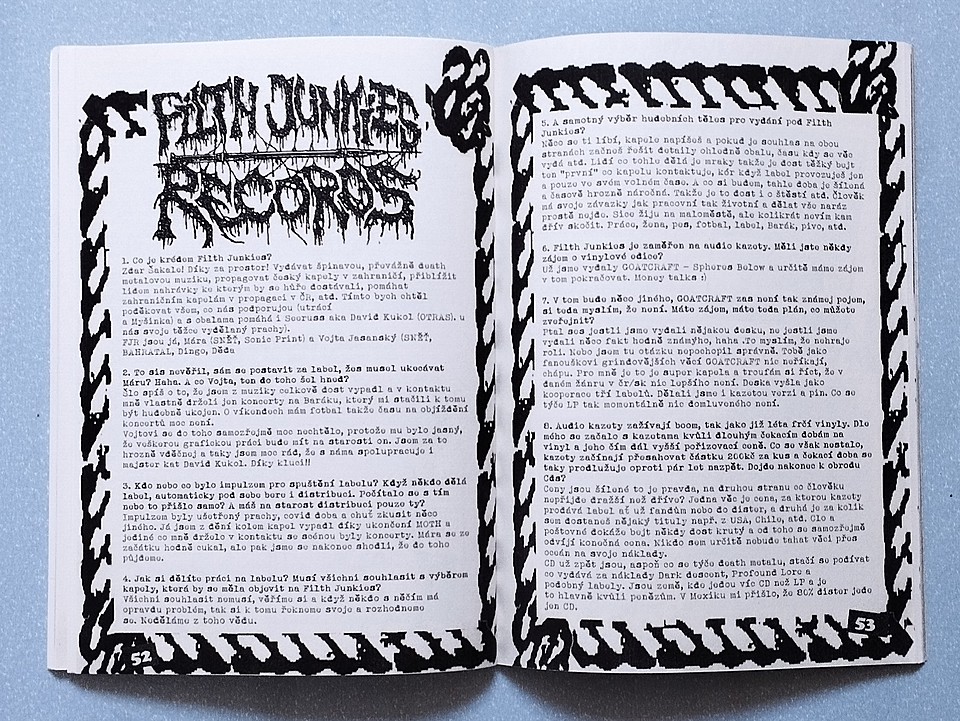 FILTH JUNKIES
RECORDS
1. Co je krédem Filth Junkies?
Zdar Šakale! Díky za prostor! Vydávat špinavou, převážně death
metalovou muziku, propagovat český kapely v zahraničí, přiblížit
lidem nahrávky ke kterým by se hůře dostávali, pomáhat
zahraničním kapelám v propagaci v ČR, atd. Tímto bych chtěl
poděkovat všem, co nás podporujou (utrácí
a Myšinka) a s obalama pomáhá i Seeruss aka David Kukol (OTRAS). u
nás svoje těžce vydělaný prachy).
FJR jsou já, Mára (SNĚŤ, Sonic Print) a Vojta Jasanský (SNĚŤ,
BAHRATAL, Dingo, Děda
2. To sis nevěřil, sám, žes postavit za label, žes musel ukecávat
Máru? Haha. A co Vojta, ten do toho šel hned?
Šlo spíš o to, že jsem z muziky celkově dost vypadl a v kontaktu
mně vlastně drželi jen koncerty na Baráku, který mi stačili k tomu
být hudebně ukojen. O víkendech mám fotbal takže času na objíždění
koncertů moc není.
Vojtovi se do toho samozřejmě moc nechtělo, protože mu bylo jasný,
že veškerou grafickou práci bude mít na starosti on. Jsem za to
hrozně vděčnej a taky jsem moc rád, že s náma spolupracuje i
majstr kat David Kukol. Díky kluci!!
3. Kdo nebo co bylo impulzem pro spuštění labelu? Když někdo dělá
label, automaticky pod sebe bere i distribuci. Počítalo se s tím
nebo to přišlo samo? A máš na starost distribuci pouze ty?
Impulzem byly ušetřený prachy, covid doba a chuť zkusit něco
jiného. Já jsem z dění kolem kapel vypadl díky ukončení MOTH a
jediné co mně drželo v kontaktu se scénou byly koncerty. Mára se ze
začátku hodně cukal, ale pak jsme se nakonec shodli, že do toho
půjdeme.
4. Jak si dělíte práci na labelu? Musí všichni souhlasit s výběrem
kapely, která by se měla objevit na Filth Junkies?
Všichni souhlasit nemusí, věříme si a když někdo s něčím má
opravdu problém, tak si k tomu řekneme svoje a rozhodneme
se. Neděláme z toho vědu.
52
5. A samotný výběr hudebních těles pro vydání pod Filth
Junkies?
Něco se ti líbí, kapele napíšeš a pokud je souhlas na obou
stranách začneš řešit detaily ohledně obalu, času kdy se věc
vydá atd. Lidí co tohle dělá je mraky takže je dost těžký bejt
ten "první" co kapelu kontaktuje, kór když label provozuješ jen
a pouze ve svém volném čase. A co si budem, tahle doba je šílená
a časově hrozně náročná. Takže je to dost i o štěstí atd. Člověk
má svoje závazky jak pracovní tak životní a dělat vše naráz
prostě nejde. Sice žiju na maloměstě, ale kolikrát nevím kam
dřív skočit. Práce, žena, pes, fotbal, label, Barák, pivo, atd.
6. Filth Junkies je zaměřen na audio kazety. Měli jste někdy
zájem o vinylové edice?
Už jsme vydaly GOATCRAFT - Spheres Below a určitě máme zájem
v tom pokračovat. Money talks :)
7. V tom bude něco jiného, GOATCRAFT zas není tak známej pojem,
si teda myslím, že není. Máte zájem, máte teda plán, co můžete
zveřejnit?
Ptal ses jestli jsme vydali nějakou desku, ne jestli jsme
vydali něco fakt hodně známýho, haha .To myslím, že nehraje
roli. Nebo jsem tu otázku nepochopil správně. Tobě jako
fanouškovi grindovějších věcí GOATCRAFT nic neříkají,
chápu. Pro mně je to super kapela a troufám si říct, že v
daném žánru v čr/sk nic lepšího není. Deska vyšla jako
kooperace tří labelů. Dělali jsme i kazetovou verzi a pin. Co se
týče LP tak momentálně nic domluveného není.
8. Audio kazety zažívají boom, tak jako již léta frčí vinyly. Dle
mého se začalo s kazetama kvůli dlouhým čekacím dobám na
vinyl a jeho čím dál vyšší pořizovací ceně. Co se však nestalo,
kazety začínají přesahovat částku 200kč za kus a čekací doba se
taky prodlužuje oproti pár let nazpět. Dojde nakonec k obrodu
Cds?
Ceny jsou šílené to je pravda, na druhou stranu co člověku
nepřijde dražší než dříve? Jedna věc je cena, za kterou kazety
prodává label ať už fandům nebo do dister, a druhá je za kolik
sem dostaneš nějaký tituly např. z USA, Chile, atd. Clo a
poštovné dokáže bejt někdy dost krutý a od toho se samozřejmě
odvíjí konečná cena. Nikdo sem určitě nebude tahat věci přes
oceán na svoje náklady.
CD už zpět jsou, aspoň co se týče death metalu, stačí se podívat
co vydává za náklady Dark descent, Profound Lore a
podobný labely. Jsou země, kde jedou víc CD než LP a je
to hlavně kvůli penězům. V Mexiku mi přišlo, že 80% dister jede
jen CD.
53